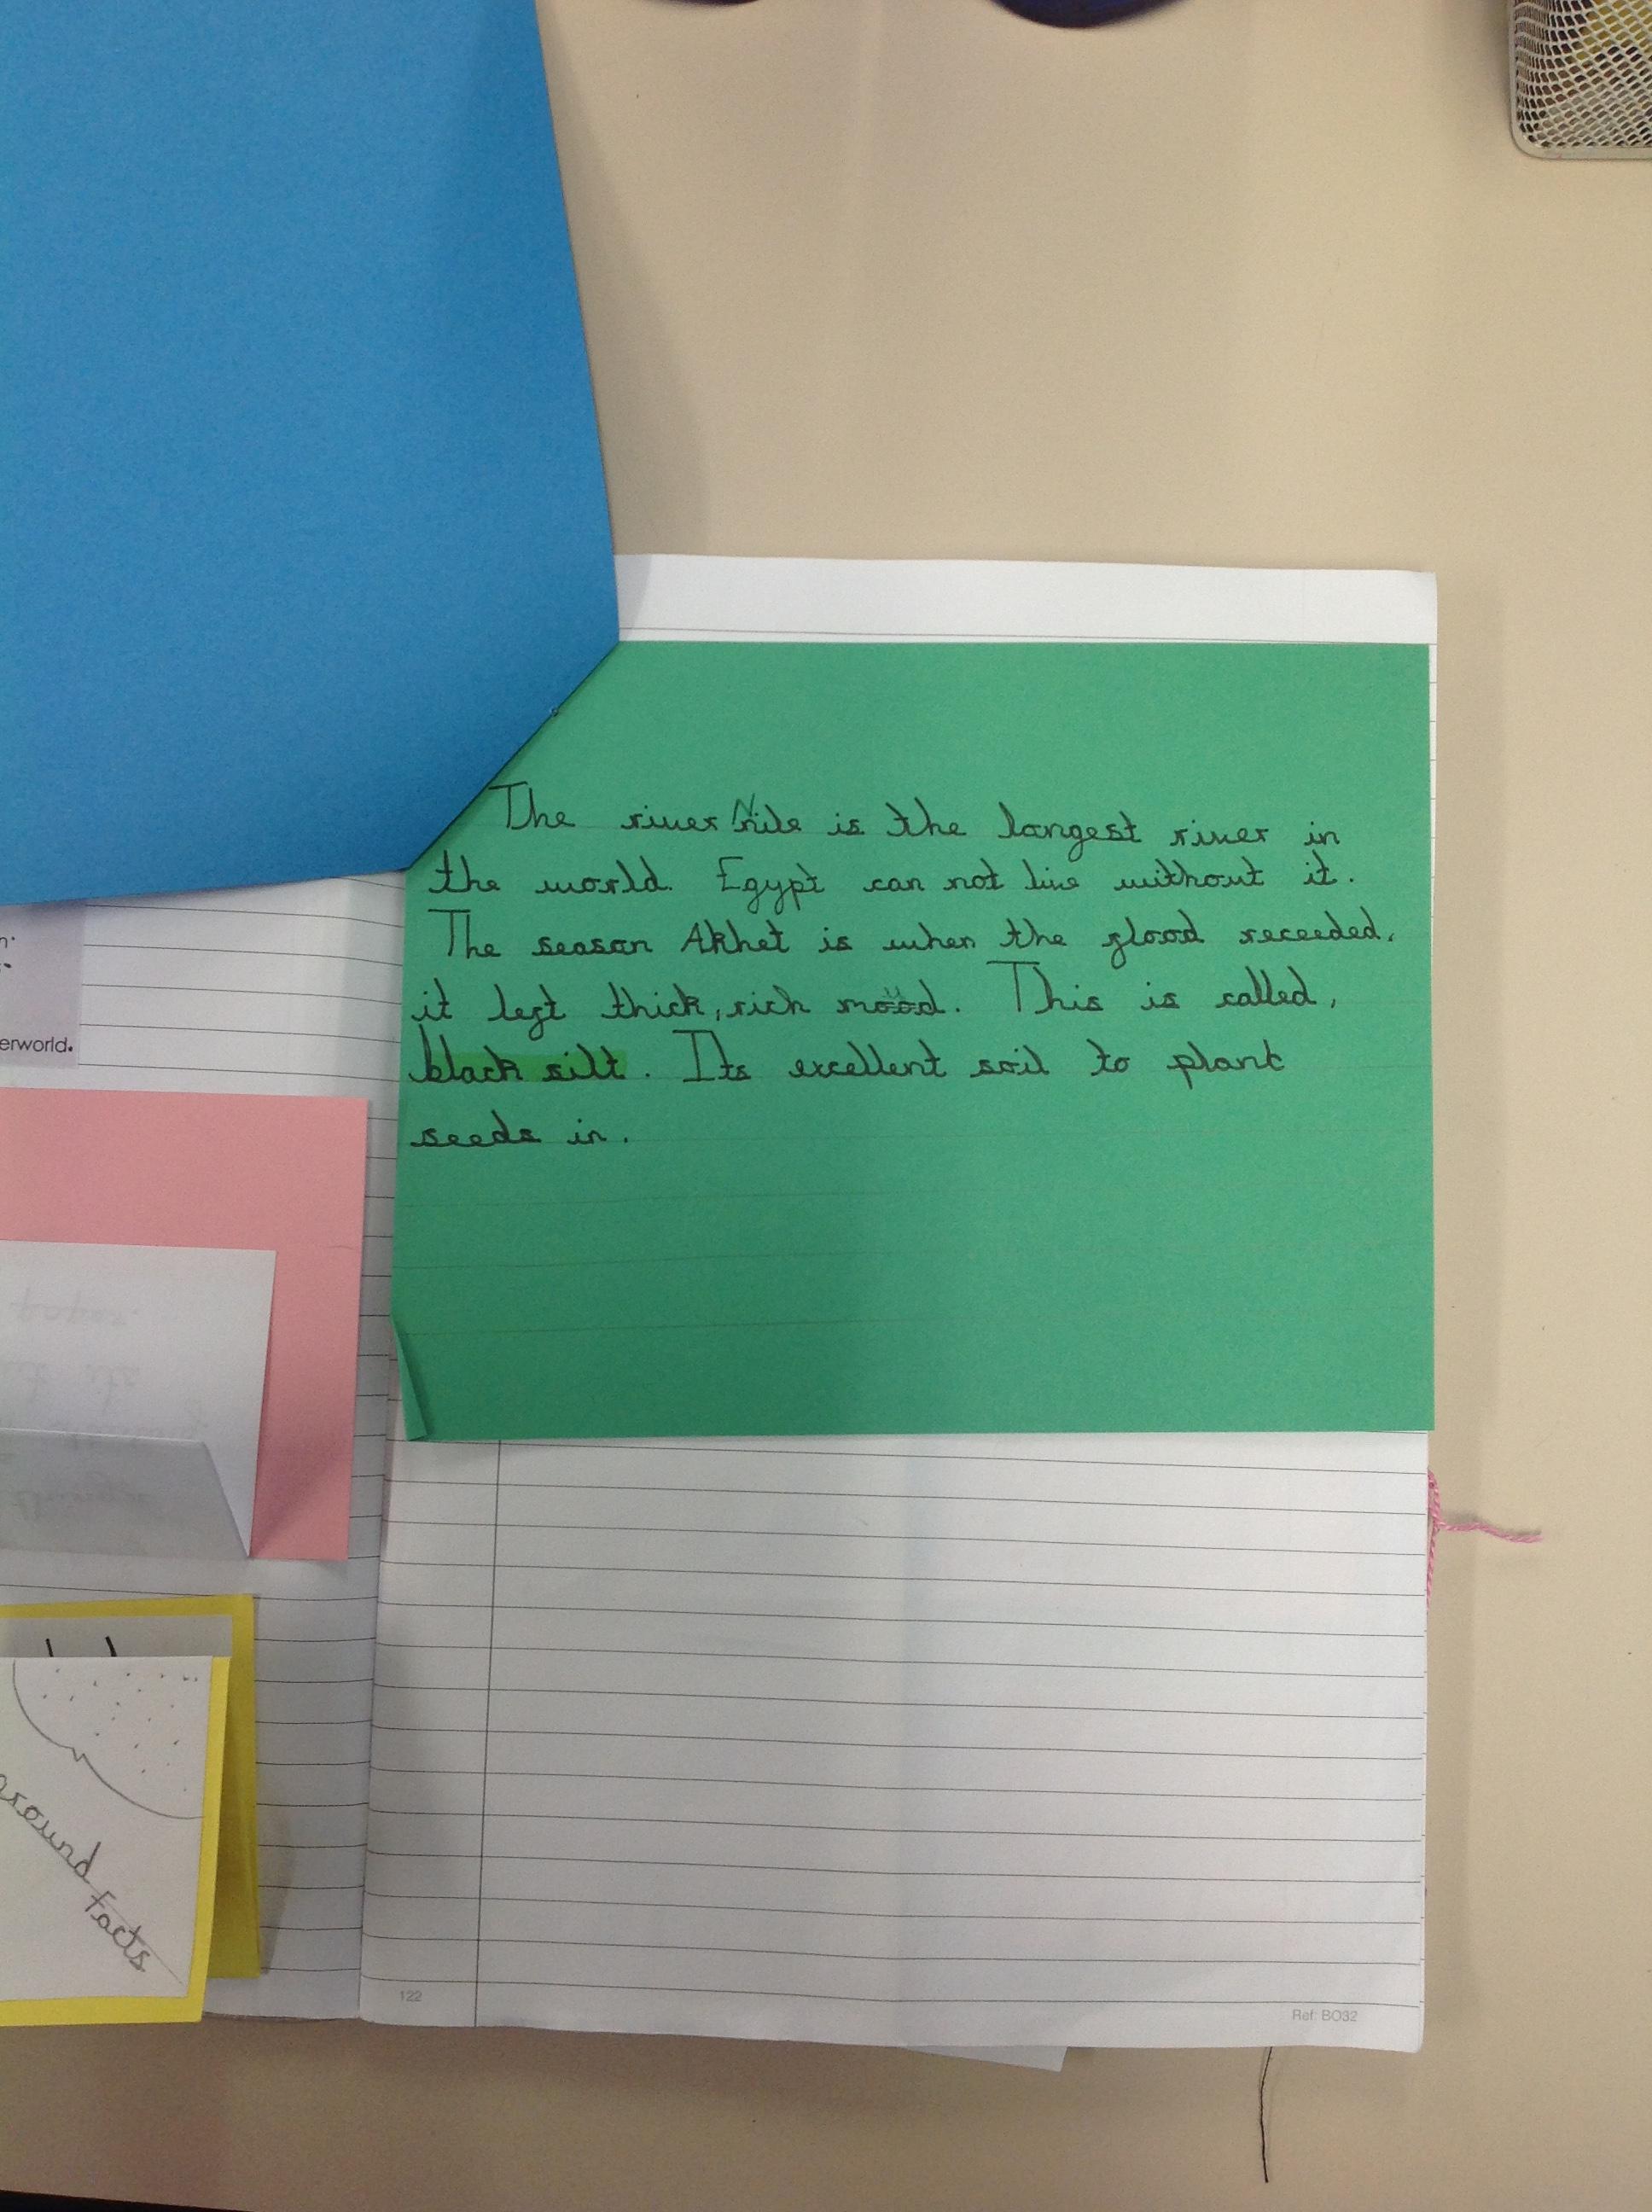 The river Nile is the longest river in
the world. Egypt can not live without it.
The season Akhet is when the flood receeded,
it left thick, rich mud. This is called,
black silt. Its excellent soil to plant
seeds in.
erworld.
around facts
122
Ref: BO32